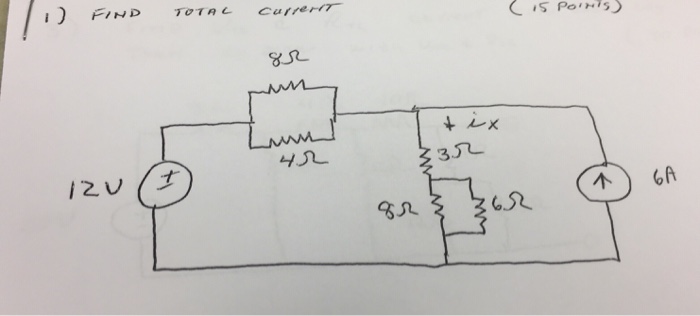 1) FIND TOTAL CURRENT (15 POINTS)
8Ω
4Ω
+ ix
3Ω
12V
+
8Ω
6Ω
6A